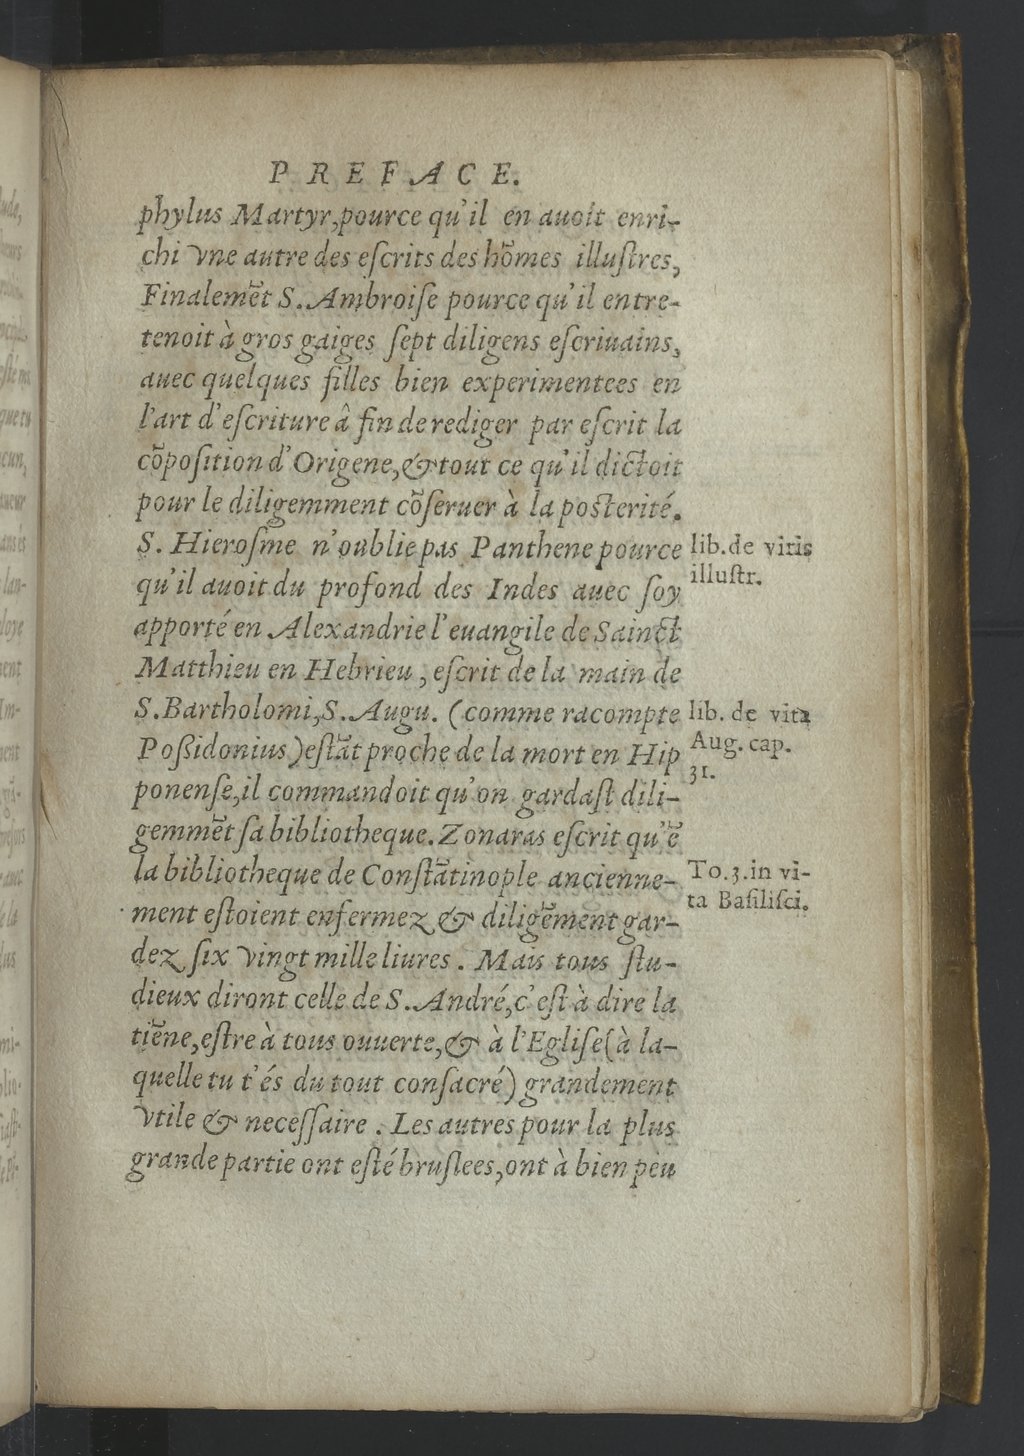 PREFACE.
phylus Martyr, pource qu'il en auoit enri-
chi vne autre des eſcrits des hõmes illuſtres,
Finalemẽt S. Ambroiſe pource qu'il entre-
tenoit à gros gaiges ſept diligens eſcriuains,
auec quelques filles bien experimentees en
l'art d'eſcriture â fin de rediger par eſcrit la
cõpoſition d'Origene, & tout ce qu'il dictoit
pour le diligemment cõſeruer à la poſterité.
S. Hieroſme n'oublie pas Panthene pource
lib. de viris
illuſtr.
qu'il auoit du profond des Indes auec ſoy
apporté en Alexandrie l'euangile de Sainct
Matthieu en Hebrieu, eſcrit de la main de
S. Bartholomi, S. Augu. (comme racompte
lib. de vita
Aug. cap.
31.
Poſsidonius) eſtãt proche de la mort en Hip
ponenſe, il commandoit qu'on gardaſt dili-
gemmẽt ſa bibliotheque. Zonaras eſcrit qu'ẽ
la bibliotheque de Conſtãtinople ancienne-
To. 3. in vi-
ta Baſiliſci.
ment eſtoient enfermez & diligẽment gar-
dez ſix vingt mille liures. Mais tous ſtu-
dieux diront celle de S. André, c'eſt à dire la
tiẽne, eſtre à tous ouuerte, & à l'Egliſe (à la-
quelle tu t'és du tout conſacré) grandement
vtile & neceſſaire. Les autres pour la plus
grande partie ont eſté bruſlees, ont à bien peu